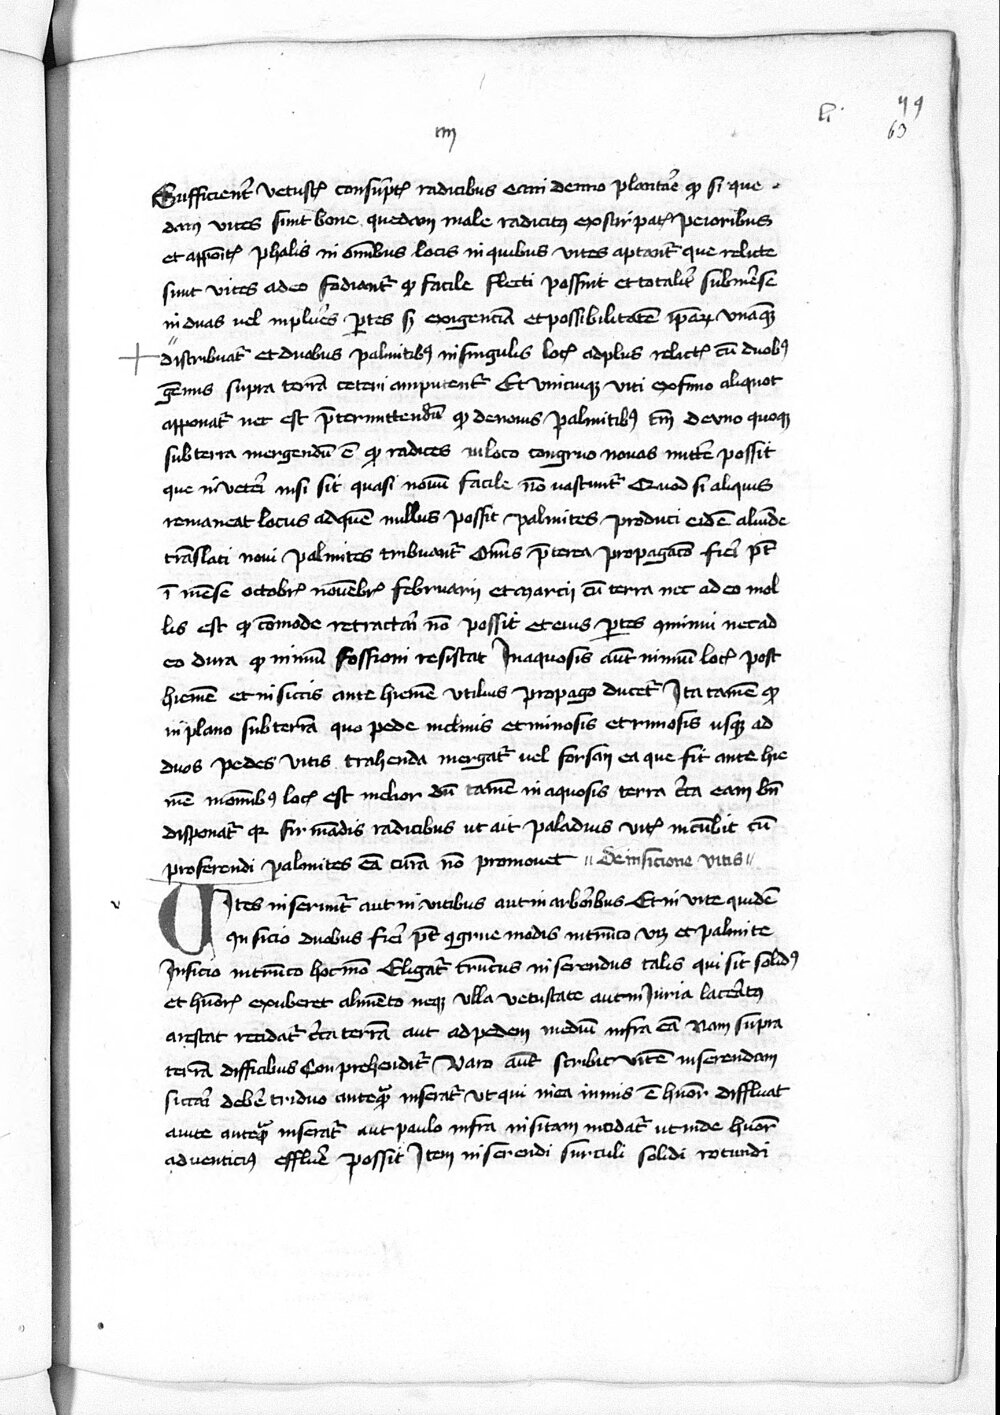 iiii
li
49
63
Sufficient̄ vetust̄ consūpt̄ radicibus eam denuo plantar̄e q̄ si que
dam vites sunt bone quedam male radicitꝰ exstirpat̄ peioribus
et apponit̄ phalis in om̄ibus locis in quibus vites aptant̄ que relicte
sunt vites adeo fodiant̄ q̄ facile flecti possint et totalit̄ submerse
in duas vel in plur̄es p̄tes sc̄ exigenciā et possibilitatē ip̄aꝝ vnāq̄
distribuat̄ et duobus palmitibꝰ in singulis loc̄ ad plus relict̄ cū duobꝰ
gēmis supra terrā ceteri amputent̄ Et vnicuiqꝫ viti ex fimo aliquot
apponat̄ nec est p̄termittendū q̄ de nouis palmitibꝰ tm̄ de vno quoqꝫ
sub terra mergendū ē q̄ radices in loco congruo nouas mitter̄e possit
que in veteri nisi sit quasi nouū facile nō nascunt̄ Quod si aliquis
remaneat locus ad quē nullus possit palmites produci eidē aliūde
trāslati noui palmites tribuant̄ Om̄is p̄terea propagac̄o fieri p̄t
ī mēse octobr̄ nouēbr̄ februarij et marcij cū terra nec adeo mol
lis est q̄ cōmode retractari nō possit et eius p̄tes ꝯminui nec ad
eo dura q̄ nimiū fossioni resistat In aquosis aut̄ nimiū loc̄ post
hiemē et in siccis ante hiemē vtilius propago ducet̄ Ita tamē q̄
in plano sub terrā quo pede in cliuis et et rimosis vsqꝫ ad
duos pedes vitis trahenda mergat̄ vel forsan ea que fit ante hie
mē in om̄ibꝰ loc̄ est melior dū tamē in aquosis terra c̄ca eam bn̄
disponat̄ qꝛ firmādis radicibus vt ait paladius vit̄ incūbit cū
proferendi palmites eā cura nō promouet // De insicione vitis //
Vites inserunt̄ aut in vitibus aut in arboribus Et in vite quidē
insicio duobus fieri p̄t ꝯgrue modis in trūco vꝫ et palmite
Insicio in trūco hoc mō Eligat̄ trūcus inserendus talis qui sit solidꝰ
et hūor̄ exuberet alimēto neqꝫ vlla vetustate aut iniuria lac̄eratꝰ
arestat recidat̄ c̄ca terrā aut ad pedem mediū infra eā Nam supra
terrā difficibus conprehendit̄ Varo aut̄ scribit vitē inserendam
siccari deber̄e triduo anteq̄ inserat̄ vt qui in ea nimis ē hūor diffluat
ante anteq̄ inserat̄ aut paulo infra insitam incidat̄ vt inde hūor
aduenticius effluer̄e possit Item inserendi surculi solidi rotundi